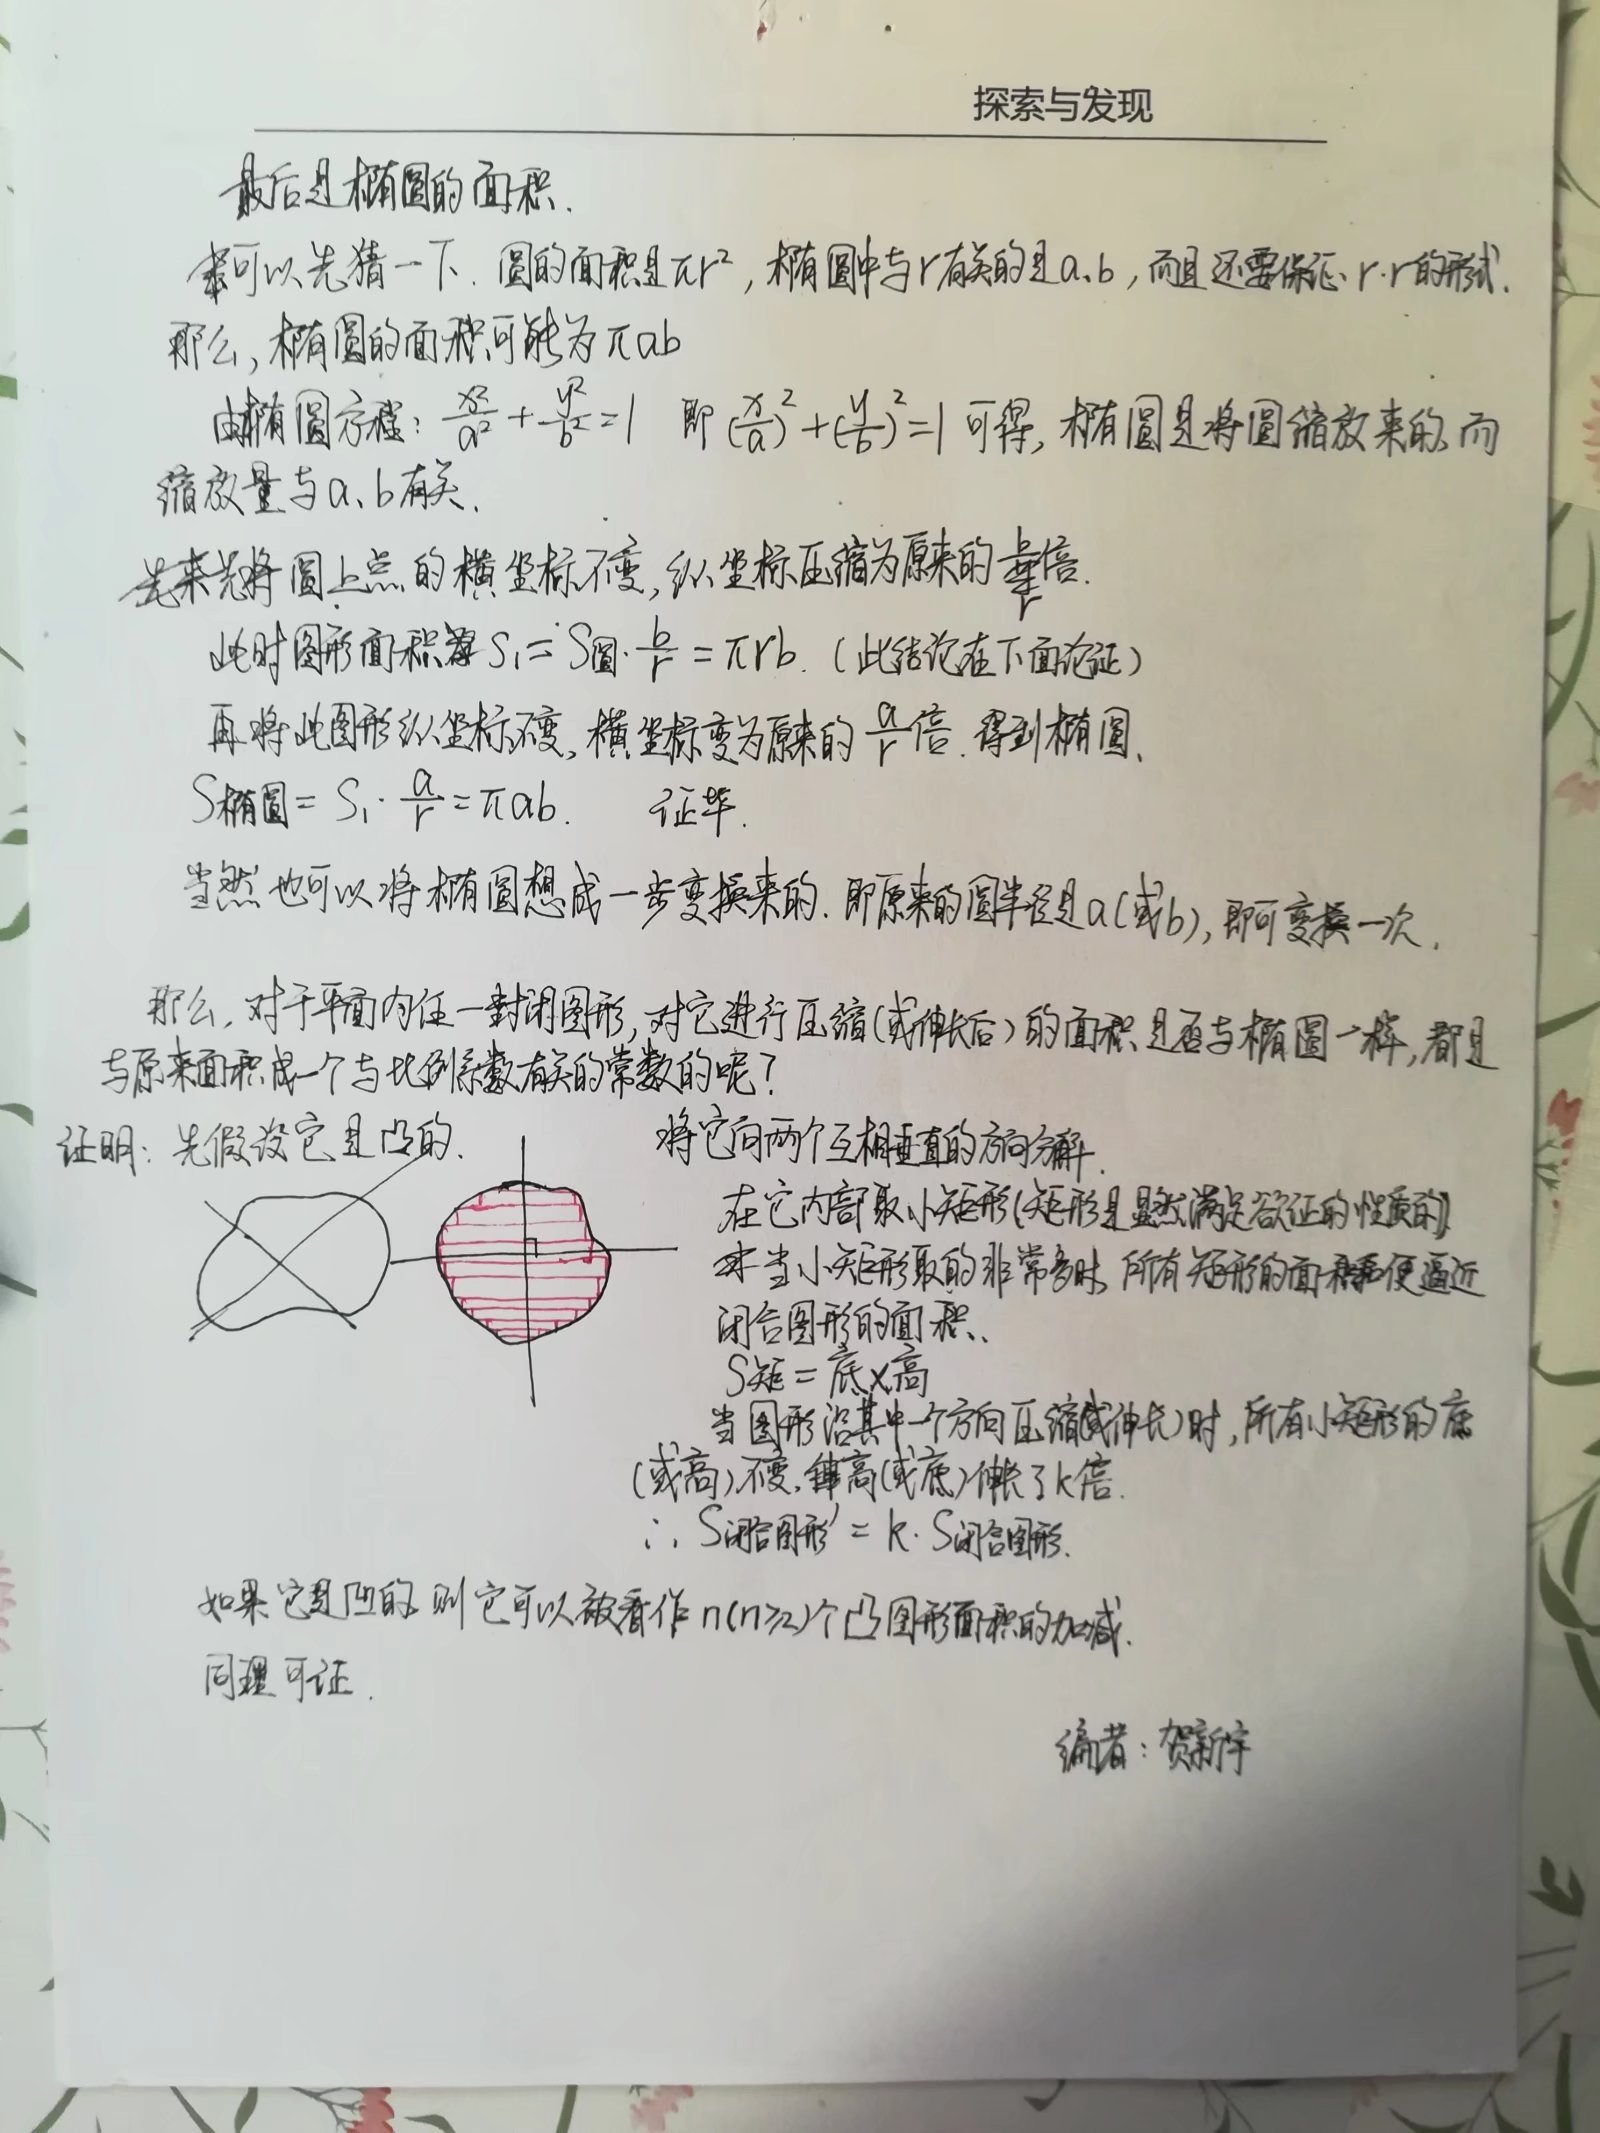 探索与发现
最后是椭圆的面积.
可以先猜一下. 圆的面积是πr², 椭圆中与r有关的是a、b, 而且还要保证r·r的形式.
那么, 椭圆的面积可能为πab
由椭圆方程: x²/a² + y²/b² = 1 即 (x/a)² + (y/b)² = 1 可得, 椭圆是将圆缩放来的, 而
缩放量与a、b有关.
先将圆上点的横坐标不变, 纵坐标压缩为原来的b/r倍.
此时图形面积 S₁ = S圆·b/r = πrb. (此结论在下面论证)
再将此图形纵坐标不变, 横坐标变为原来的a/r倍. 得到椭圆.
S椭圆 = S₁·a/r = πab. 证毕.
当然也可以将椭圆想成一步变换来的. 即原来的圆半径是a(或b), 即可变换一次.
那么, 对于平面内任一封闭图形, 对它进行压缩(或伸长后)的面积是否与椭圆一样, 都是
与原来面积成一个与比例系数有关的常数的呢?
证明: 先假设它是凸的.
将它向两个互相垂直的方向分解.
在它内部取小矩形(矩形是显然满足欲证的性质的)
当小矩形取的非常多时, 所有矩形的面积和便逼近
闭合图形的面积.
S矩 = 底×高
当图形沿其中一个方向压缩(或伸长)时, 所有小矩形的底
(或高)不变, 高(或底)伸长了k倍.
∴ S闭合图形′ = k·S闭合图形.
如果它是凹的, 则它可以被看作n(n≥2)个凸图形面积的加减.
同理可证.
编者: 贺新宇